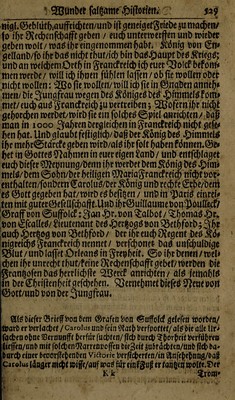 Wunder saltzame Historien. 529
nigl. Geblüth auffrichten/und ist geneiget Friede zu machen/
so ihr Rechenschafft geben / euch unterwerffen und wieder
geben wolt / was ihr eingenommen habt. König von En-
gelland/so ihr das nicht thut/ich bin das Haupt des Kriegs;
und an welchem Orth in Franckreich ich eure Volck bekom-
men werde / will ich ihnen fühlen lassen / ob sie wollen oder
nicht wollen: Wo sie wollen/will ich sie in Gnaden anneh-
men: die Jungfrau wegen des Königs des Himmels kom-
met / euch aus Franckreich zu vertreiben; Wofern ihr nicht
gehorchen werdet/wird sie ein solches Spiel anrichten / daß
man in 1000 Jahren dergleichen in Franckreich nicht gese-
hen hat. Und glaubt festiglich/daß der König des Himmels
ihr mehr Stärcke geben wird/als ihr folt haben können. Ge-
het in Gottes Nahmen in euer eigen Land / und entschlaget
euch dieser Meynung/denn ihr werdet dem König des Him-
mels/dem Sohn/der heiligen Maria Franckreich nicht vor-
enthalten/sondern Carolus/der König und rechte Erbe/dem
es Gott gegeben hat/wird es besitzen / und in Pariß einrei-
ten mit guter Gesellschafft. Und ihr Guillaume von Poulleck/
Graff von Suffolck: Jan Hr. von Talbot/Thomas Hr.
von Escalles/ Lieutenant des Hertzogs von Bethford: Ihr
auch Hertzog von Bethford / der ihr euch Regent des Kö-
nigreichs Franckreich nennet / verschonet das unschuldige
Blut / und lasset Orleans in Freyheit. So ihr denen / wel-
chen ihr unrecht thut/keine Rechenschafft gebet/werden die
Frantzosen das herrlichste Werck anrichten / als jemahls
in der Christenheit geschehen. Vernehmet dieses Neue von
Gott/und von der Jungfrau.
Als dieser Brieff von dem Grafen von Suffolck gelesen worden/
ward er verlachet / Carolus und sein Rath verspottet / als die alle Ur-
sachen ohne Vernunfft herfür suchten / sich durch Thorheit verführen
liessen / und mit solchen Narrenpossen die Zeit zubrächten / und sich da-
durch einer bevorstehenden Victorie versicherten/in Ansehung/daß
Carolus länger nicht wisse/auf was für ein Fuß er tantzen wolte. Der
K k Trom-